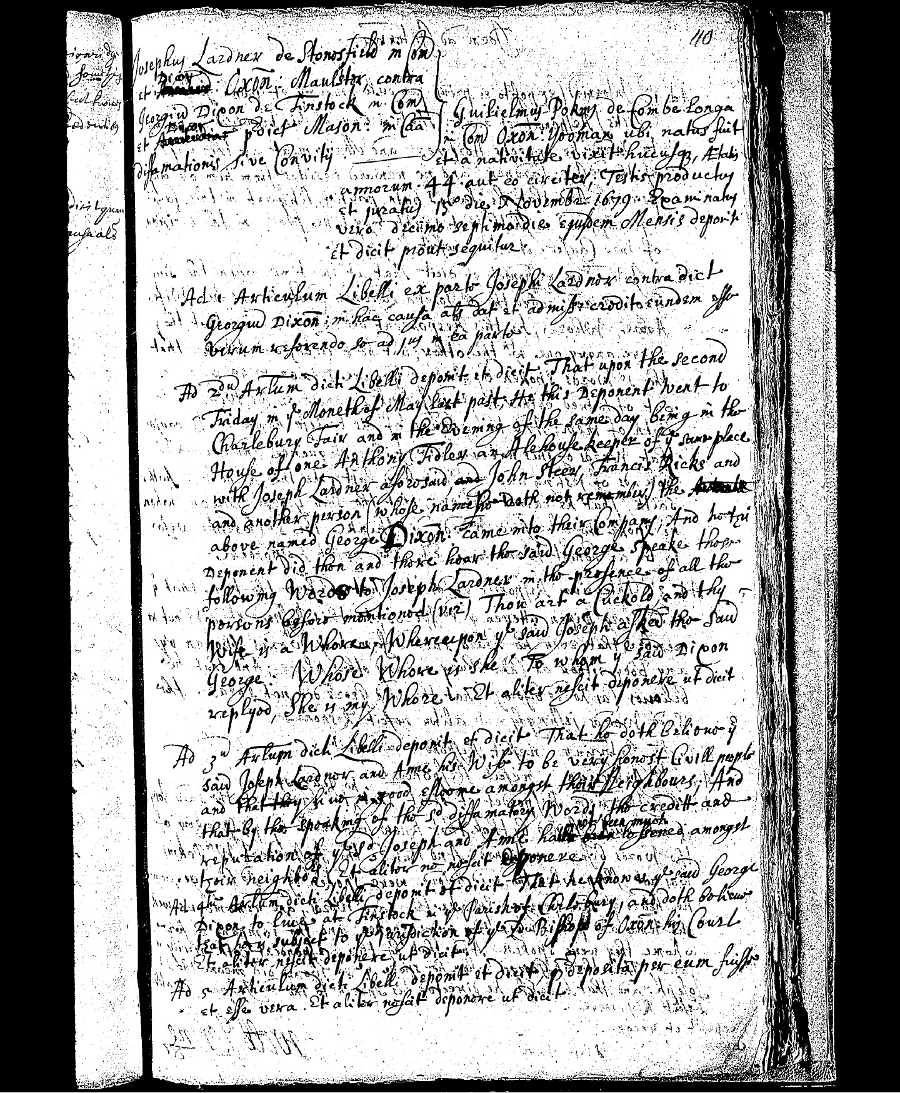 110
Josephus Lardner de Stonesfield in Com
et Dicay Oxon: Maulster contra
Georgiu Dixon de Finstock in Com
et pdict Mason: in Caa
diffamationis sive Convitij
Guilielmus de Combe Longa
in Com Oxon: Yeoman ubi natus fuit
et a nativitate vixit hucusq, Ætatis
annorum 44 aut eo circiter, Testis productus
et juratus 15º die Novembr: 1679. Examinatus
vero decimo septimo die ejusdem Mensis deponit
et dicit prout sequitur
Ad 1 Articulum Libelli ex parte Josephi Lardner contra dict
Georgiu Dixon: in hac causa als dat et admiss: credit eundem esse
verum referendo se ad in ea parte
Ad 2um Artlum dicti Libelli deponit et dicit That upon the second
Friday in ye Moneth of May last past, He this Deponent went to
Charlebury Fair and in the Evening of the same day being in the
House of one Anthony Fidler an Alehousekeeper of ye same place
with Joseph Lardner aforesaid and John Steer, Francis Ricks and
and another person (whose name he doth not remember) the
above named George Dixon came into their Company, And he this
Deponent did then and there hear the said George speake these
following Words to Joseph Lardner in the presence of all the
persons before mentioned (viz) Thou art a Cuckold and thy
Wife is a Whore, Whereupon ye said Joseph asked the said
George: Whose Whore is she? To whom ye said Dixon
replyed, She is my Whore. Et aliter nescit deponere ut dicit
Ad 3um Artlum dicti Libelli deponit et dicit That he doth believe ye
said Joseph Lardner and Ame his Wife to be very honest Civill people
and that they live in good esteeme amongst their Neighbours, And
that by the speaking of the sd diffamatory Words the creditt and
reputation of ye sd Joseph and Ame hath not been much lessened amongst
their neighbors Et aliter nescit deponere
Ad 4 Artlum dicti Libelli deponit et dicit That he knowes ye said George
Dixon to live at Finstock in ye Parish of Charlebury, and doth believe
subject to ye Jurisdiction of ye Ld Bishop of Oxon: his Court
Et aliter nescit deponere ut dicit
Ad 5 Articulum dicti Libelli deponit et dicit p deposita per eum fuisse
et esse vera. Et aliter nescit deponere ut dicit